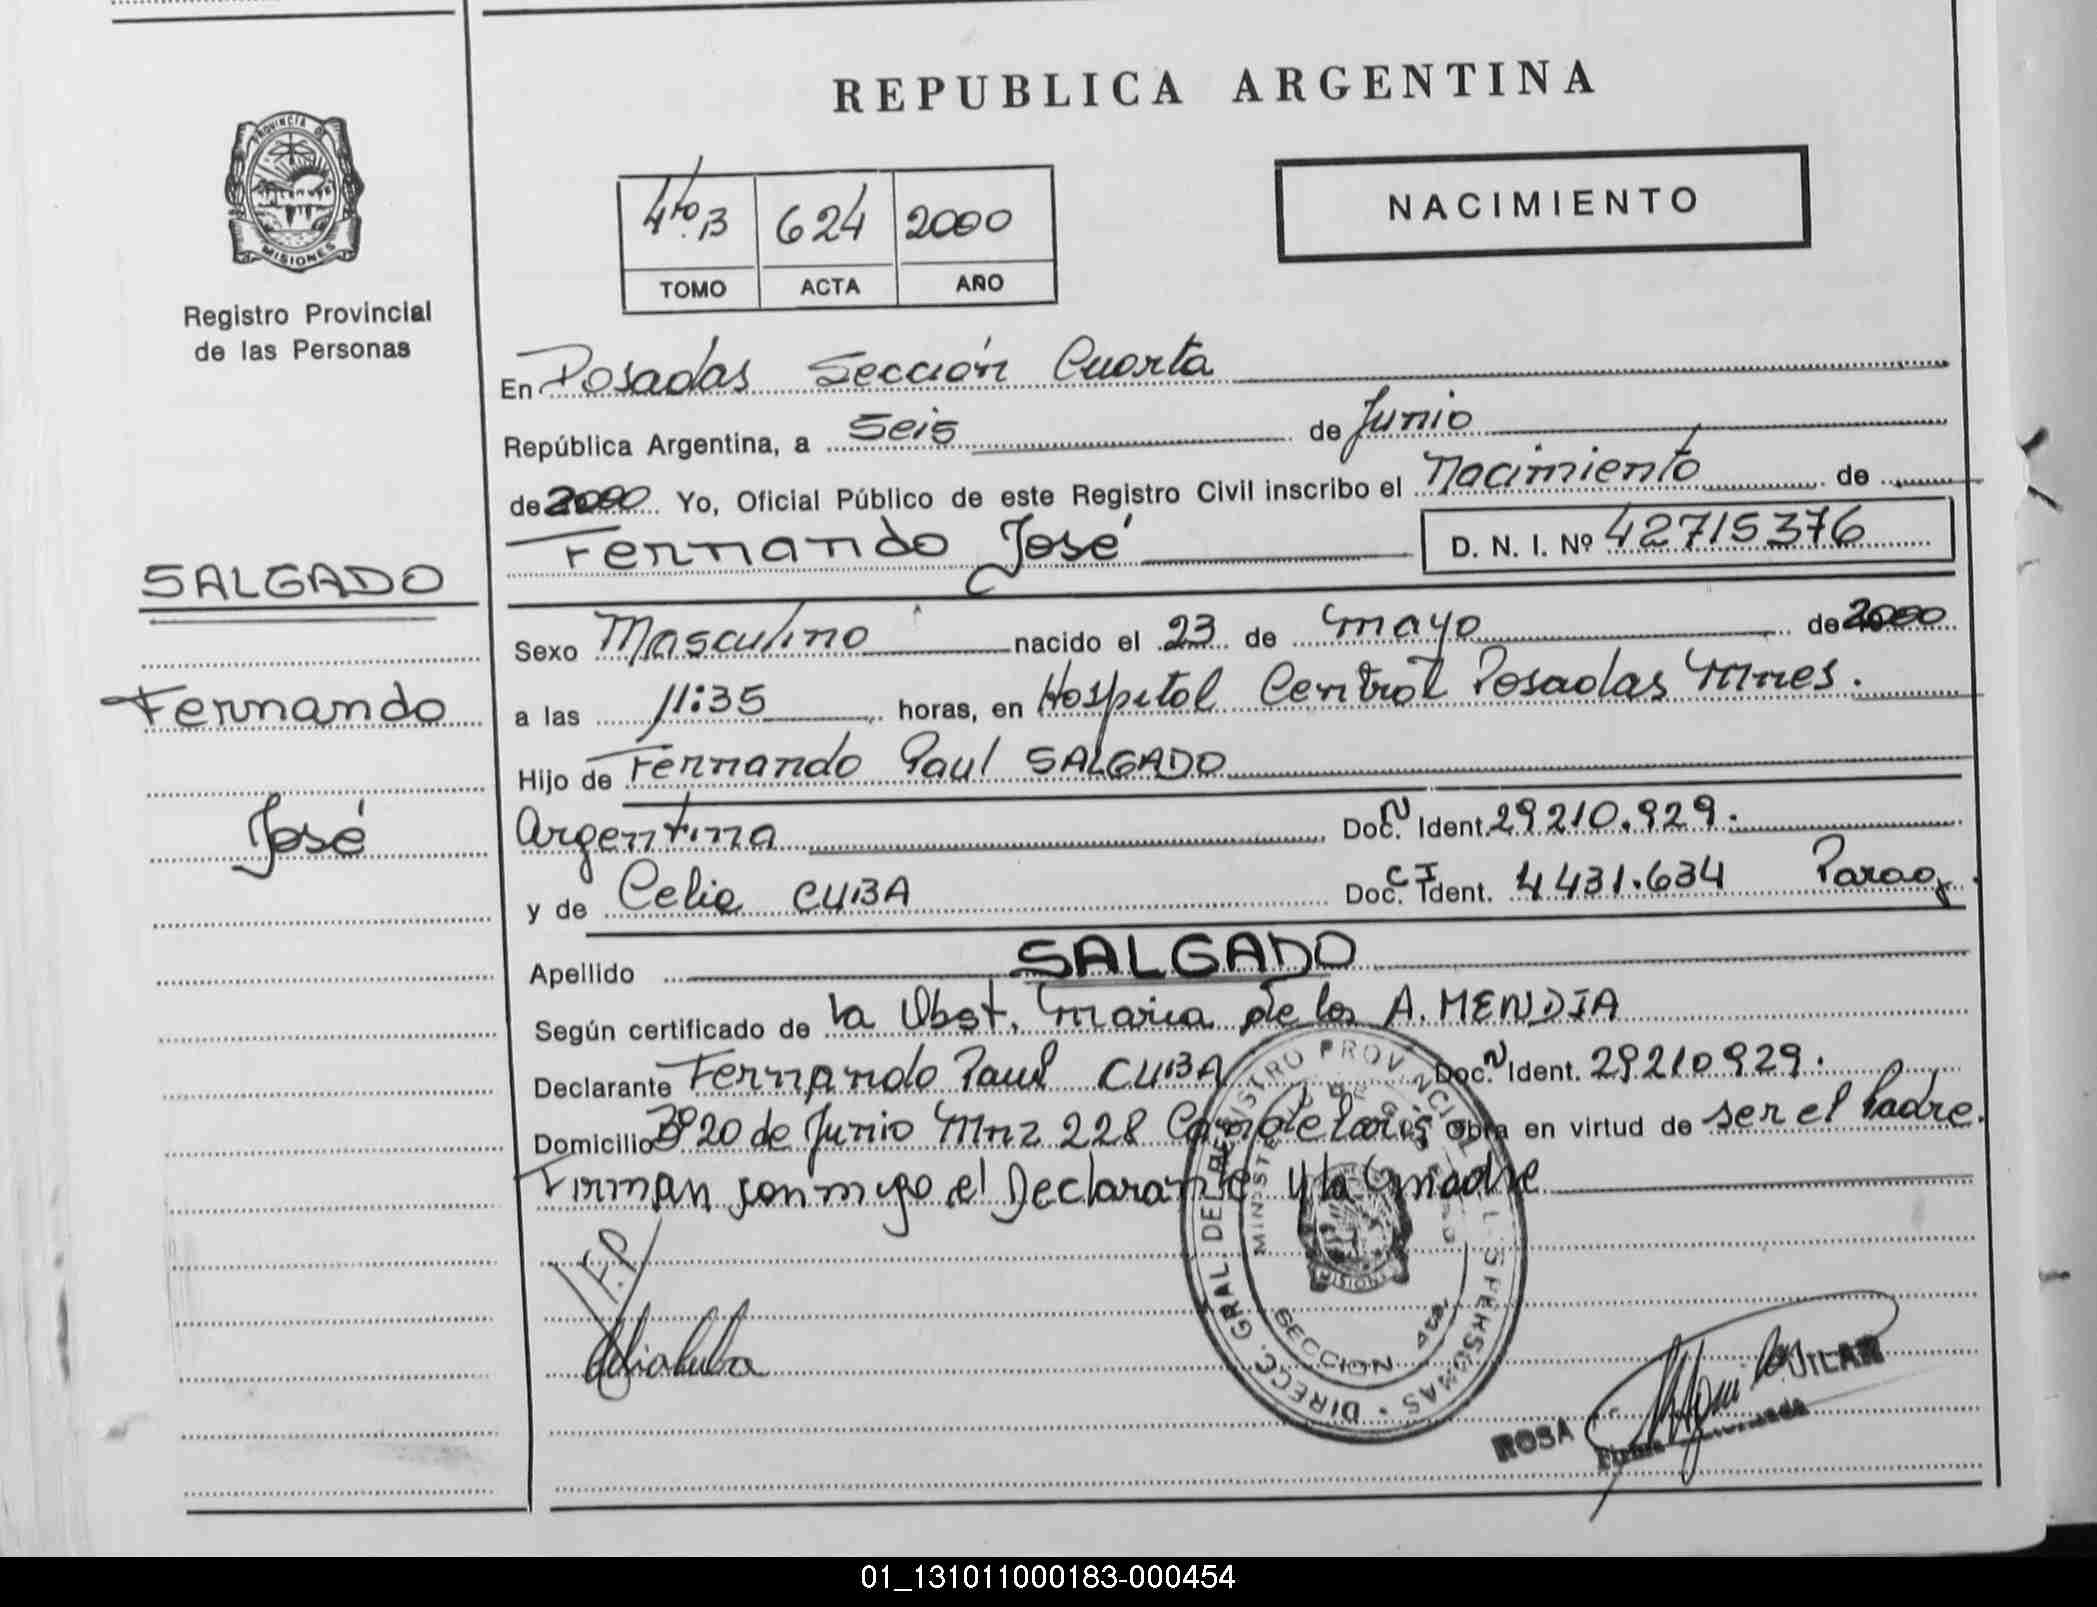 REPUBLICA ARGENTINA
PROVINCIA DE
MISIONES
Registro Provincial
de las Personas
4to.B 624 2000
TOMO ACTA AÑO
NACIMIENTO
En Posadas Sección Cuarta
República Argentina, a Seis de Junio
de 2000 Yo, Oficial Público de este Registro Civil inscribo el Nacimiento de
Fernando José D. N. I. Nº 42715376
SALGADO
Fernando
José
Sexo Masculino nacido el 23 de mayo de 2000
a las 11:35 horas, en Hospital Central Posadas Mnes.
Hijo de Fernando Paul SALGADO
Argentina Doc. N Ident. 29210.929.
y de Celia CUBA Doc. C I Ident. 4431.634 Parag.
Apellido SALGADO
Según certificado de la Obst. Maria de los A. MENDIA
Declarante Fernando Paul CUBA Doc. N Ident. 29210929.
Domicilio Bº 20 de Junio Mnz 228 Candelaria obra en virtud de ser el Padre.
Firman conmigo el Declarante y la madre
DIRECC. GRAL. DEL REGISTRO PROVINCIAL PERSONAS
SECCION 4ta.
MISIONES
F.P
Celia Cuba
ROSA AGUILAR
01_131011000183-000454